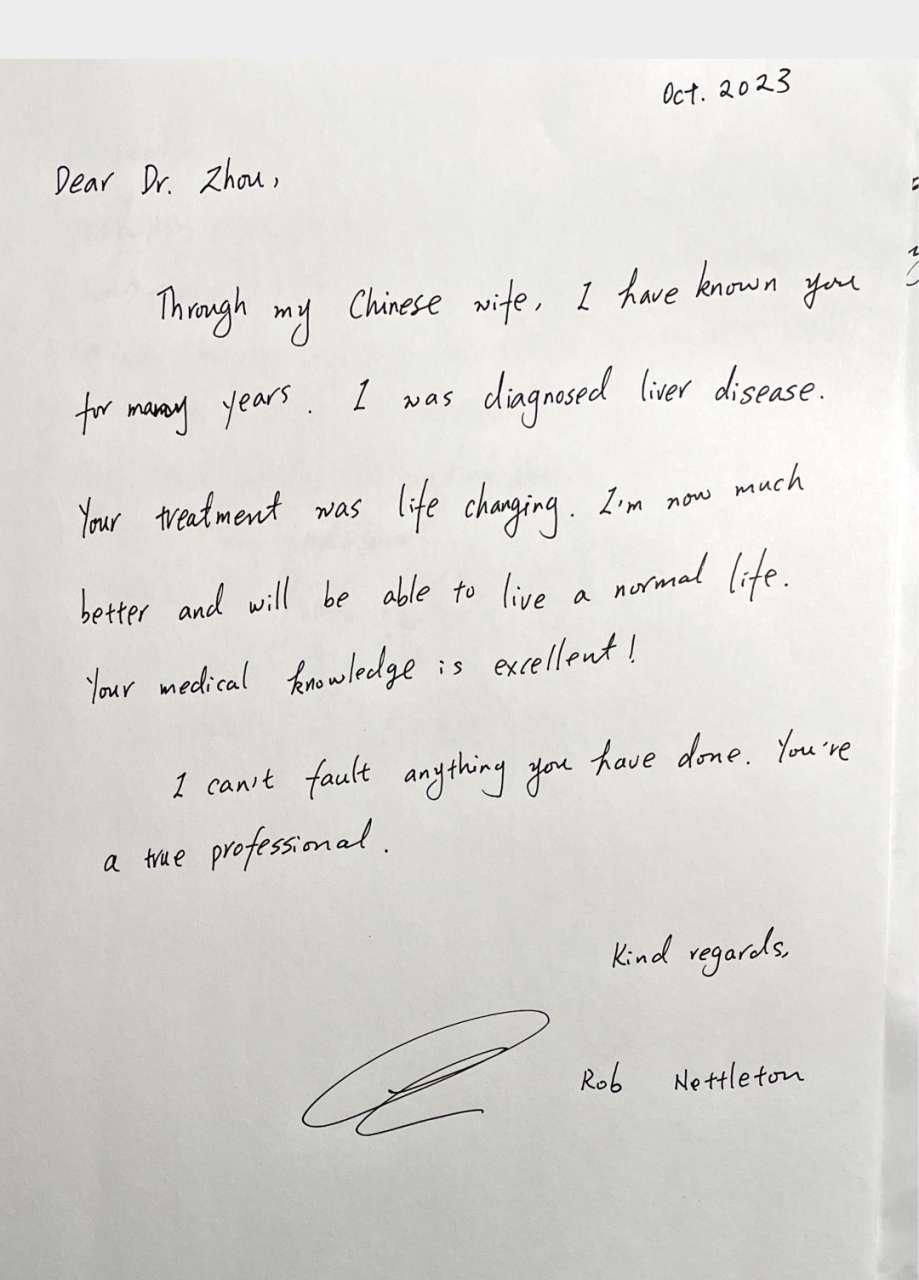 Oct. 2023
Dear Dr. Zhou,
Through my Chinese wife, I have known you
for many years. I was diagnosed liver disease.
Your treatment was life changing. I'm now much
better and will be able to live a normal life.
Your medical knowledge is excellent!
I can't fault anything you have done. You're
a true professional.
Kind regards,
Rob Nettleton